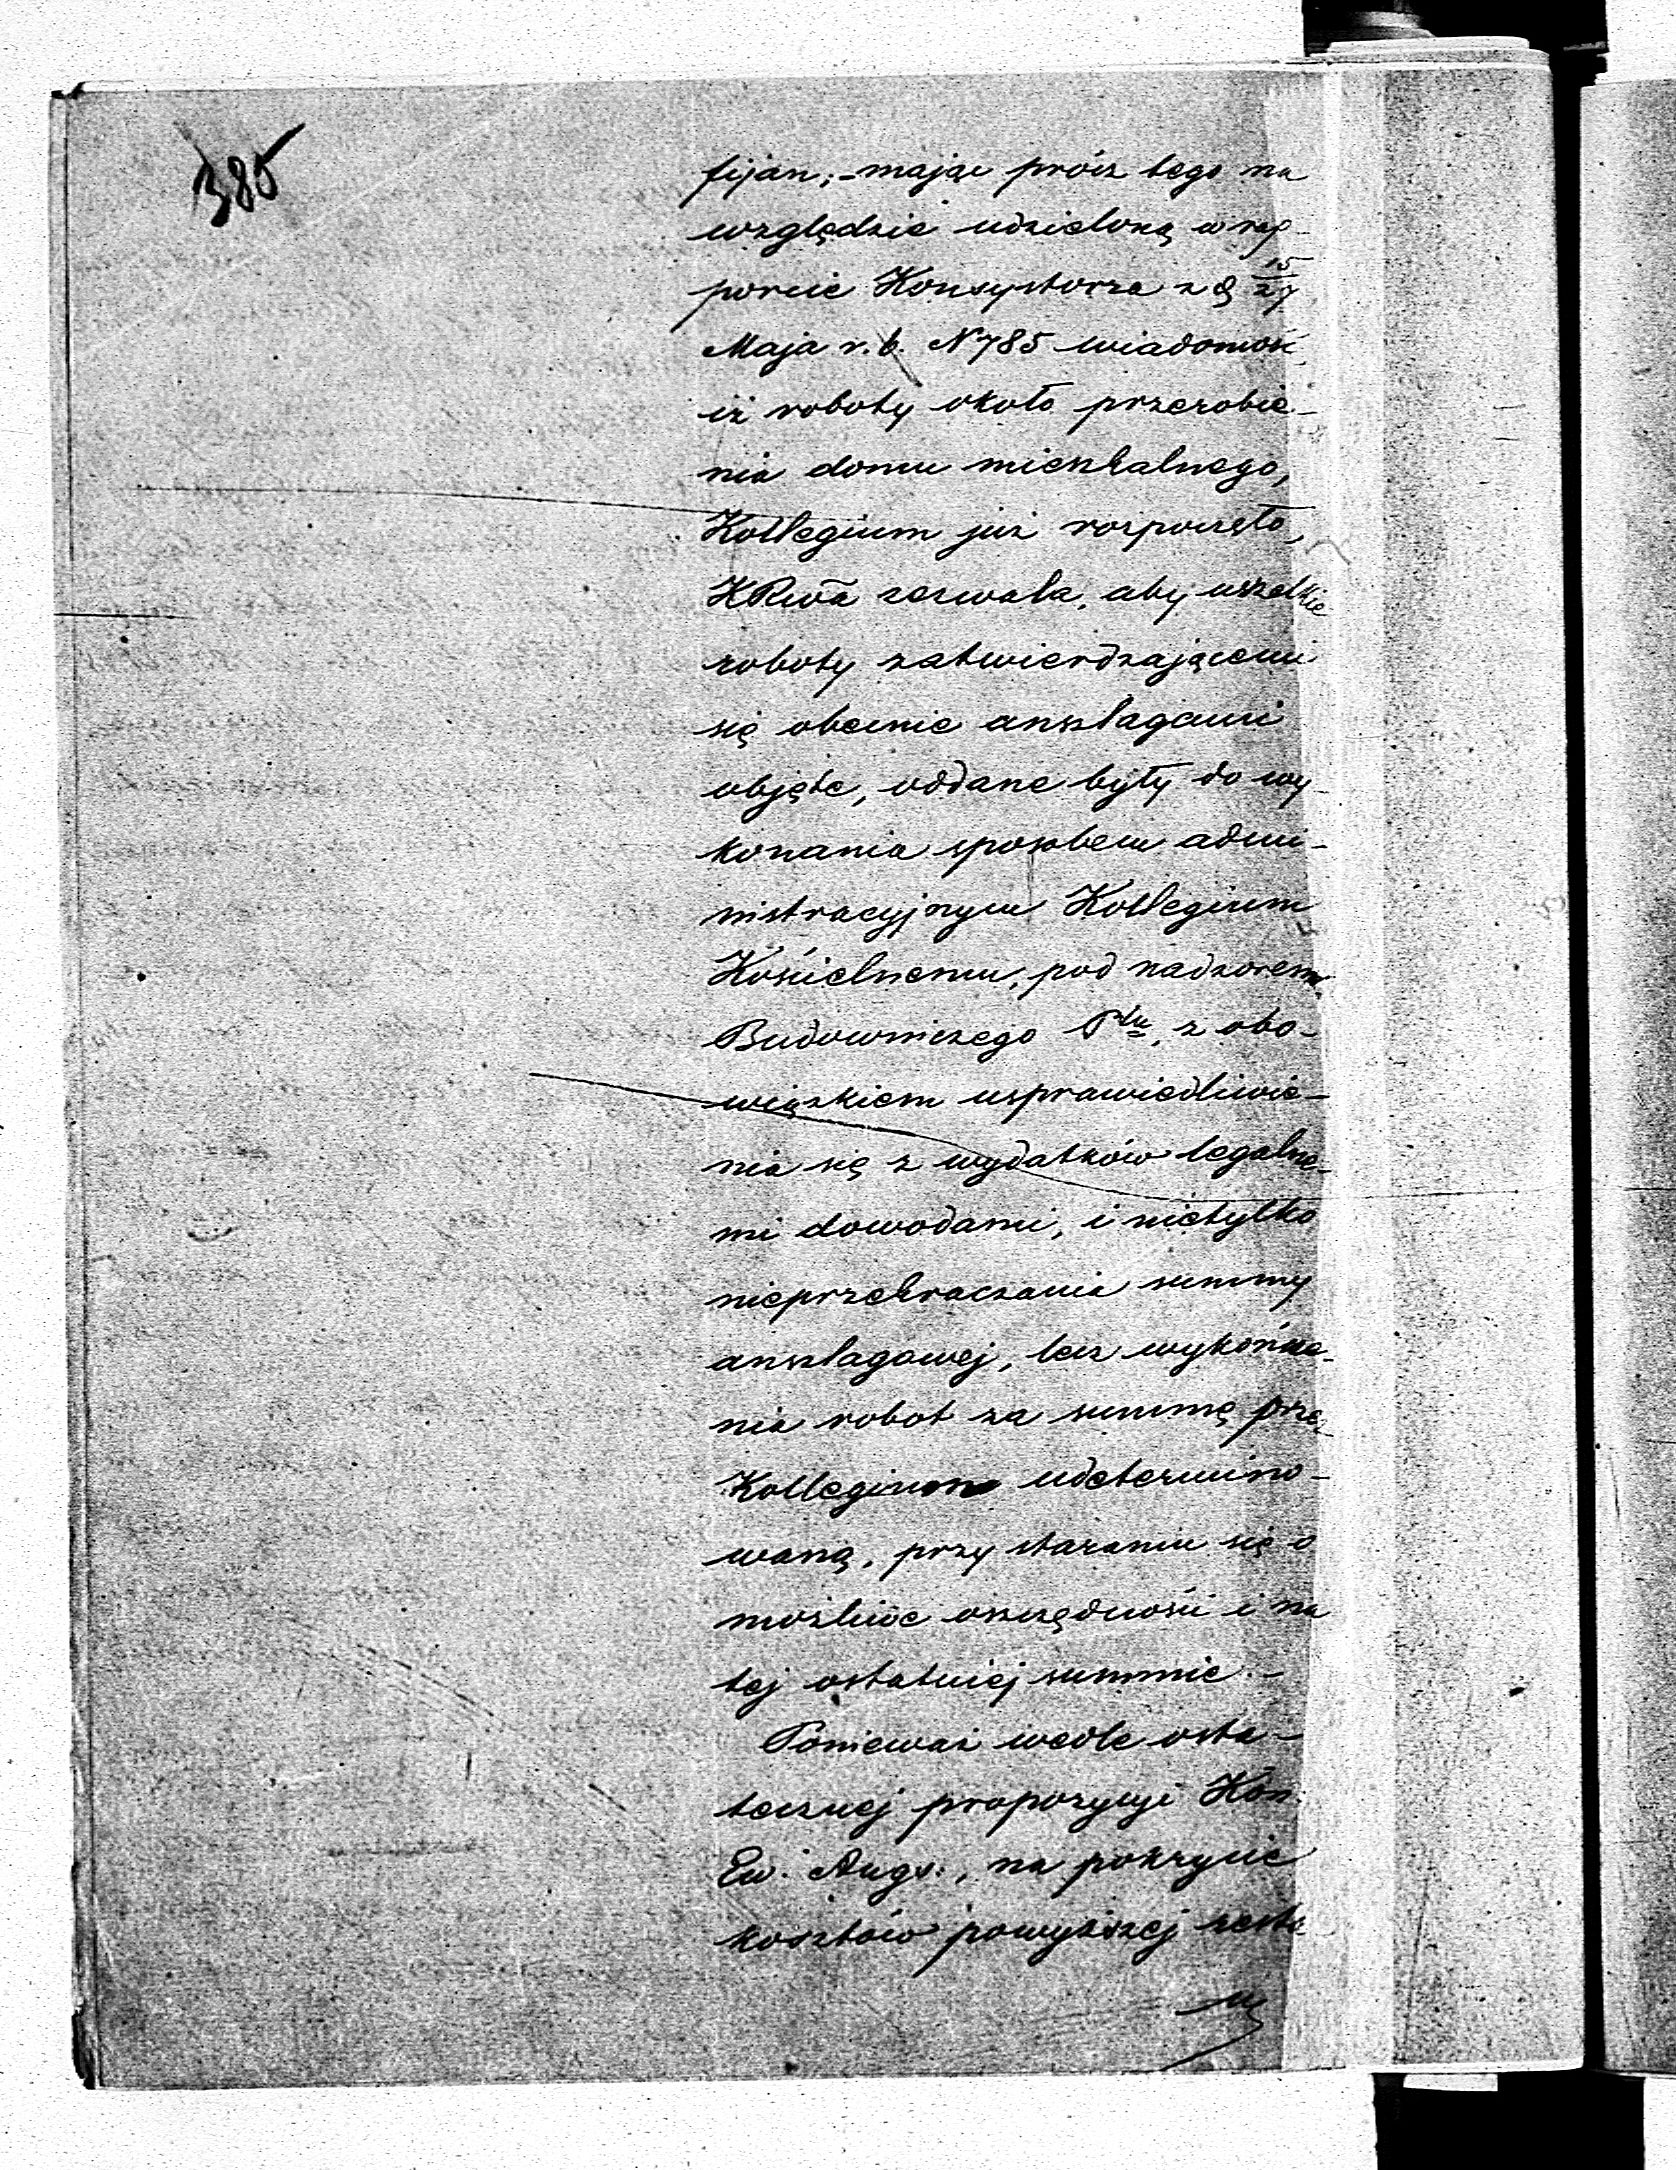 385
fijan; – mając prócz tego na
względzie udzieloną w rap-
porcie Konsystorza z d 15/27
Maja r. b. N 785 wiadomość,
iż roboty około przerobie-
nia domu mieszkalnego,
Kollegium już rozpoczęło,
KRwa zezwala, aby wszelkie
roboty zatwierdzającemi
się obecnie anszlagami
objęte, oddane były do wy-
konania sposobem admi-
nistracyjnym Kollegium
Kościelnemu, pod nadzorem
Budowniczego Ptu, z obo-
wiązkiem usprawiedliwie-
nia się z wydatków legalne-
mi dowodami, i nietylko
nieprzekraczania summy
anszlagowej, lecz wykona-
nia robot za summę prze
Kollegium udetermino-
waną, przy staraniu się o
możliwe oszczędności i na
tej ostatniej summie. –
Ponieważ wedle osta-
tecznej propozycyi Kon.
Ew. Augs:, na pokrycie
kosztów powyższej resta